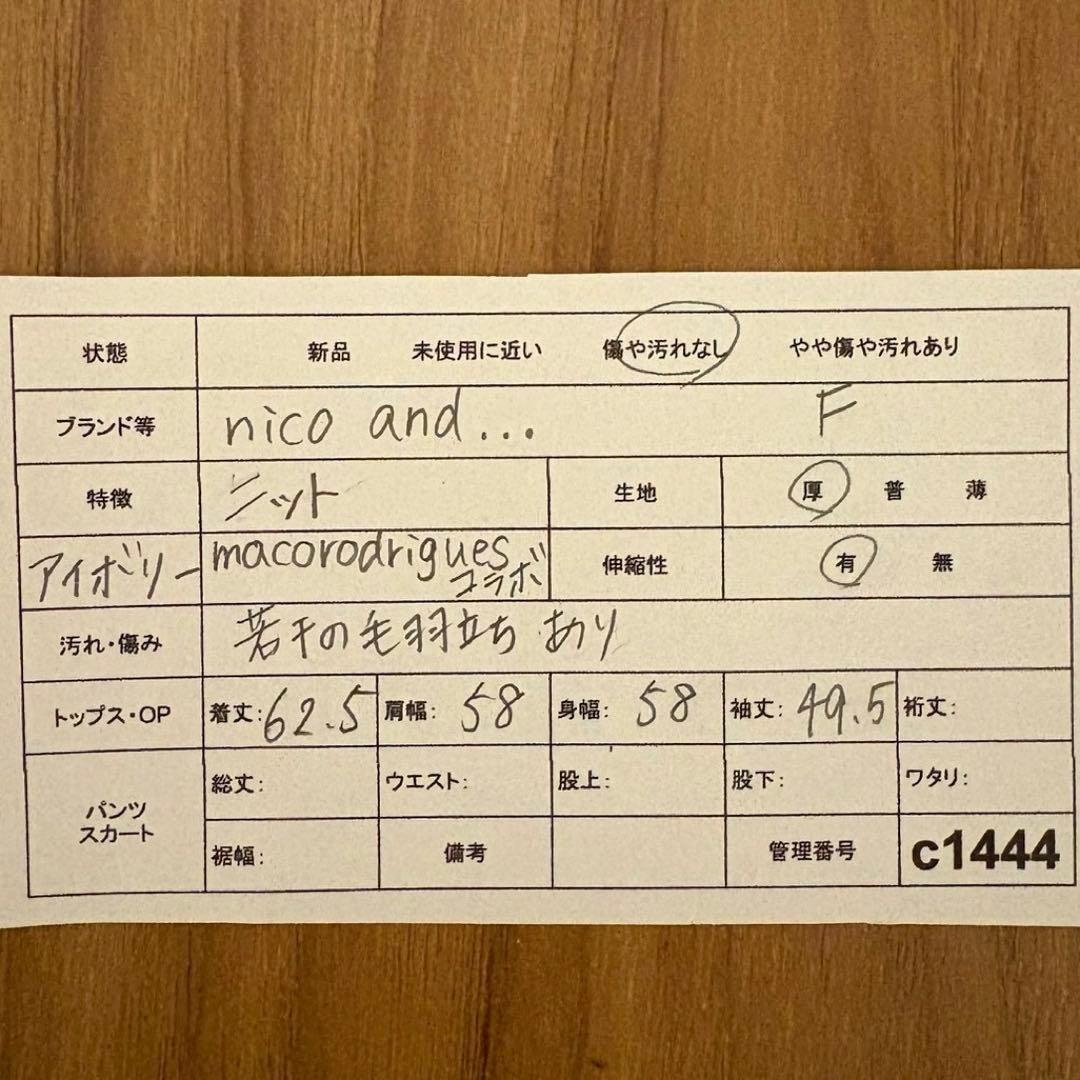 状態 新品 未使用に近い 傷や汚れなし やや傷や汚れあり
ブランド等 nico and... F
特徴 ニット 生地 厚 普 薄
アイボリー macorodrigues コラボ 伸縮性 有 無
汚れ・傷み 若干の毛羽立ちあり
トップス・OP 着丈:62.5 肩幅:58 身幅:58 袖丈:49.5 裄丈:
パンツ スカート 総丈: ウエスト: 股上: 股下: ワタリ:
裾幅: 備考 管理番号 c1444